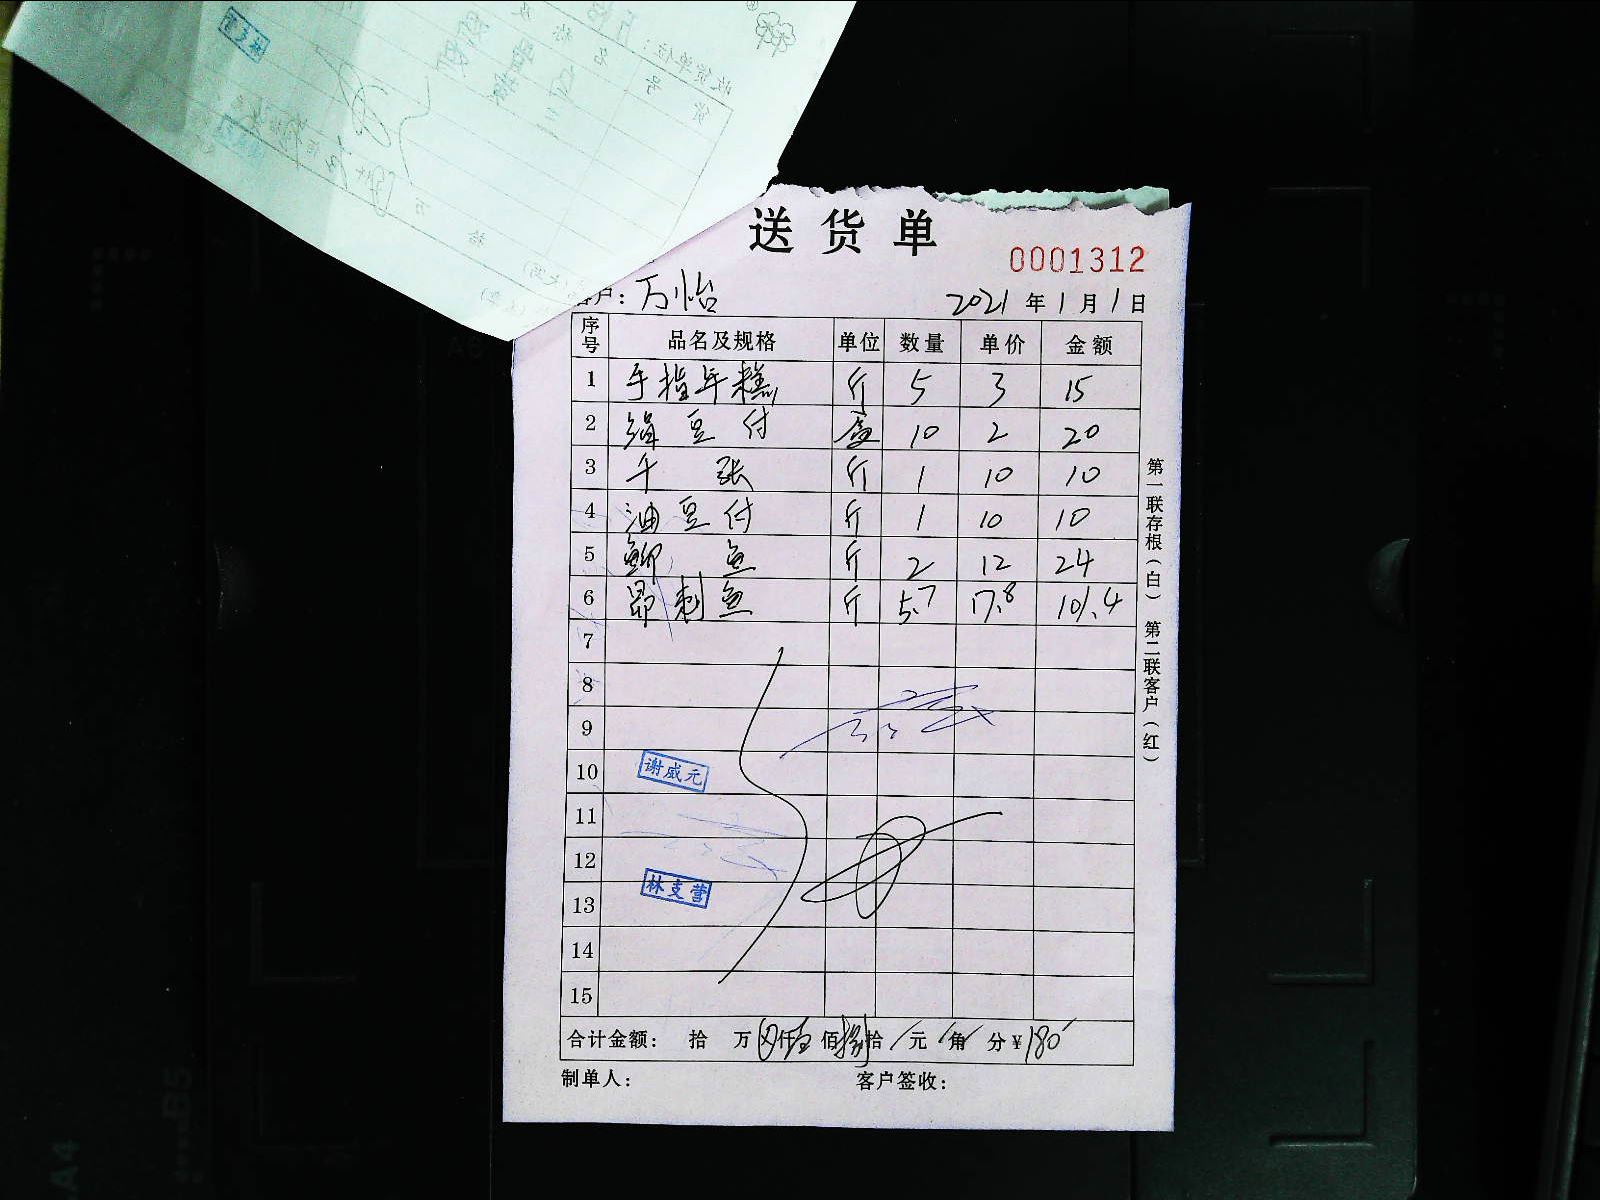 送货单
0001312
客户：万怡 2021年1月1日
序号 品名及规格 单位 数量 单价 金额
1 手指年糕 斤 5 3 15
2 绢豆付 盒 10 2 20
3 千张 斤 1 10 10
4 油豆付 斤 1 10 10
5 鲫鱼 斤 2 12 24
6 昂刺鱼 斤 5.7 17.8 101.4
7
8
9
10 谢威元
11
12
13 林支营
14
15
合计金额： 拾 万 仟 壹 佰 捌 拾 / 元 / 角 / 分 ¥180
制单人： 客户签收：
第一联存根（白） 第二联客户（红）
A4
B5